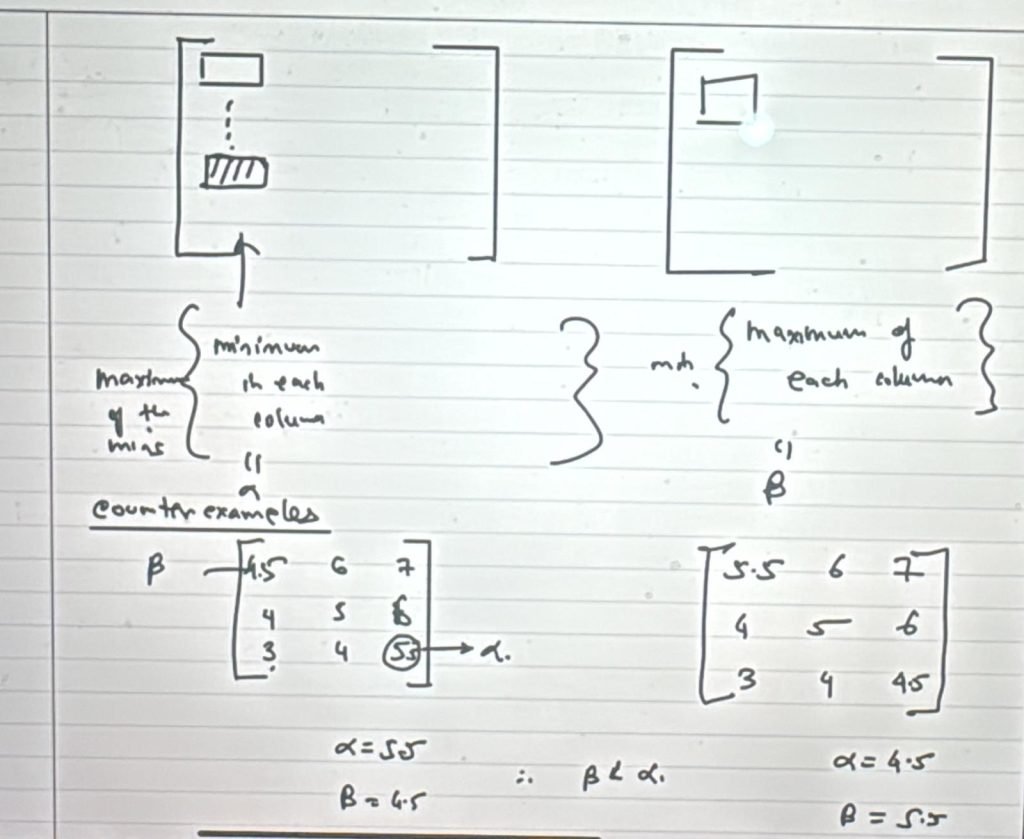 maximum of the mins { minimum in each column }
||
α
min. { maximum of each column }
||
β
Counter examples
β — [ 4.5 6 7
4 5 6
3 4 5.5 ] → α.
α = 5.5
β = 4.5
∴ β < α.
[ 5.5 6 7
4 5 6
3 4 4.5 ]
α = 4.5
β = 5.5